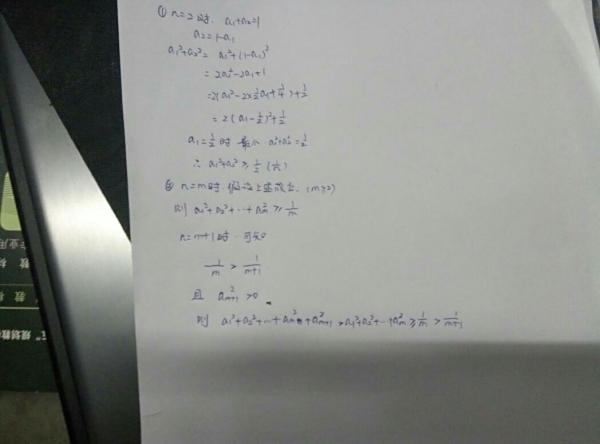 ① n=2时, a₁+a₂=1
a₂=1-a₁
a₁²+a₂²= a₁²+(1-a₁)²
= 2a₁²-2a₁+1
=2(a₁²-2×½a₁+¼)+½
= 2(a₁-½)²+½
a₁=½时 最小 a₁²+a₂²=½
∴ a₁²+a₂²≥½ (1/n)
② n=m时 假设上述成立. (m≥2)
则 a₁²+a₂²+…+aₘ²≥1/m
n=m+1时 可知
1/m > 1/(m+1)
且 aₘ₊₁²>0
则 a₁²+a₂²+…+aₘ²+aₘ₊₁²>a₁²+a₂²+…+aₘ²≥1/m>1/(m+1)
专业用
教
标
教
"规划教